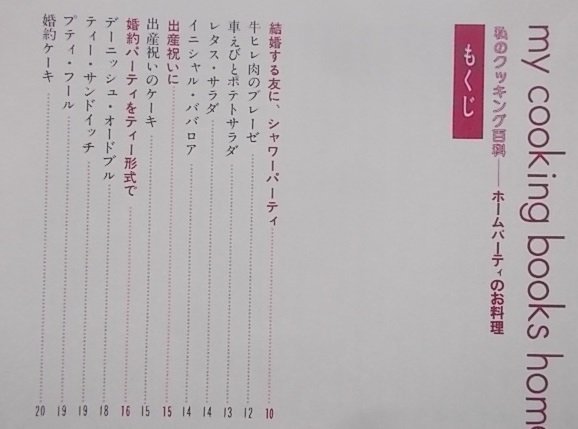 my cooking books home
私のクッキング百科——ホームパーティのお料理
もくじ
結婚する友に、シャワーパーティ……10
牛ヒレ肉のブレーゼ……12
車えびとポテトサラダ……13
レタス・サラダ……14
イニシャル・ババロア……14
出産祝いに……15
出産祝いのケーキ……15
婚約パーティをティー形式で……16
デーニッシュ・オードブル……18
ティー・サンドイッチ……19
プティ・フール……19
婚約ケーキ……20